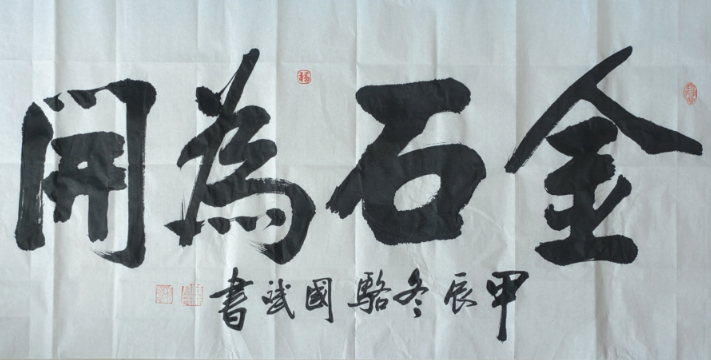 金石為開
甲辰冬駱國斌書